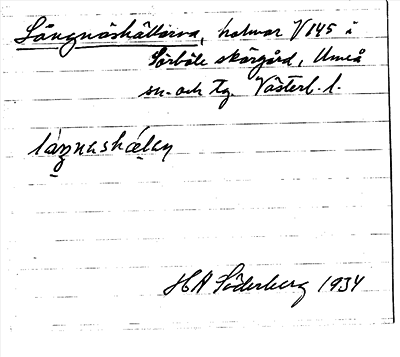 Långnäshällorna, holmar V 145 i
Sörböle skärgård, Umeå
sn. och tg. Västerb. l.
láŋnashǽlaṇ
H A Söderberg 1934